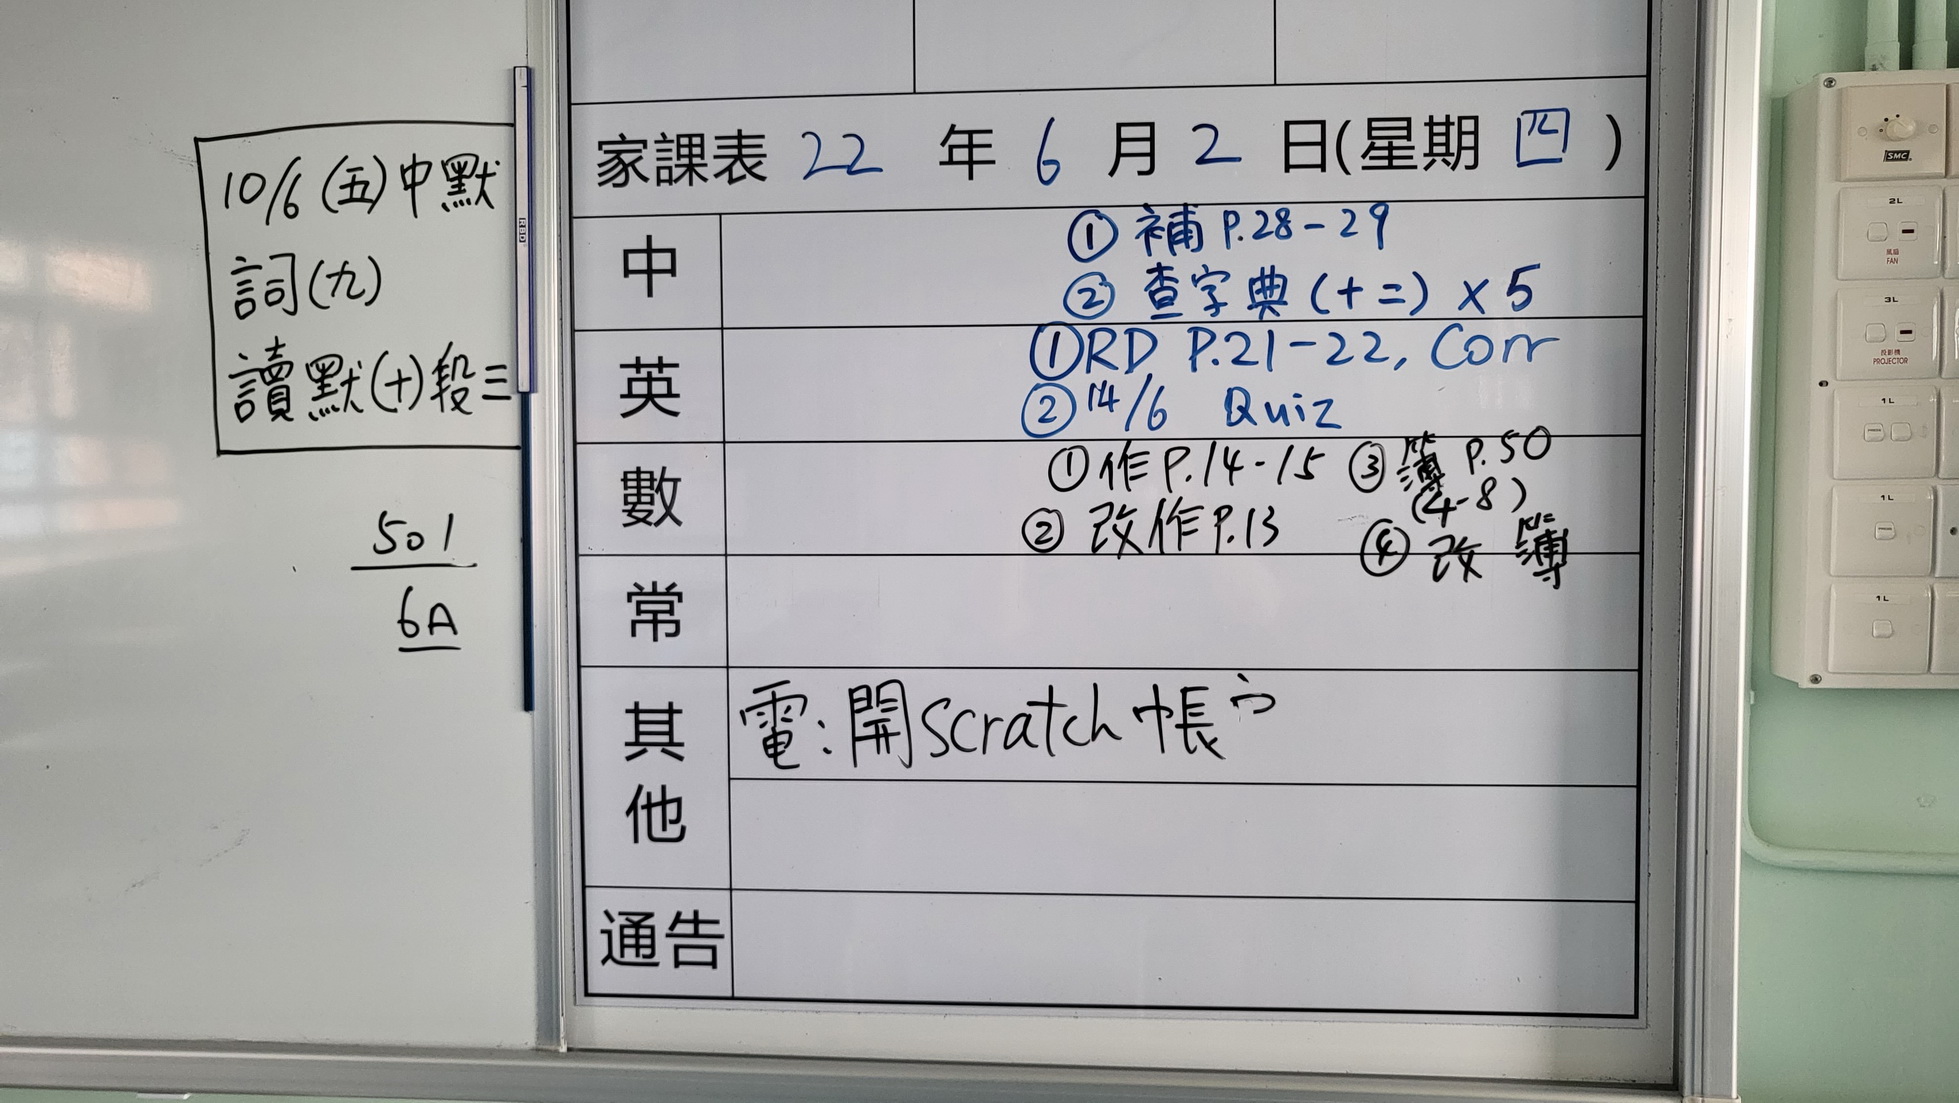 10/6 (五) 中默
詞(九)
讀默(十)段三
501
6A
家課表 22 年 6 月 2 日(星期 四 )
中
① 補 P.28-29
② 查字典 (十二) x 5
英
① RD P.21-22, Corr
② 14/6 Quiz
數
① 作 P.14-15 ③ 簿 P.50
(4-8)
② 改作 P.13 ④ 改 簿
常
其他
電:開Scratch帳户
通告
SMC
2L
風扇
FAN
3L
投影機
PROJECTOR
1L
1L
1L